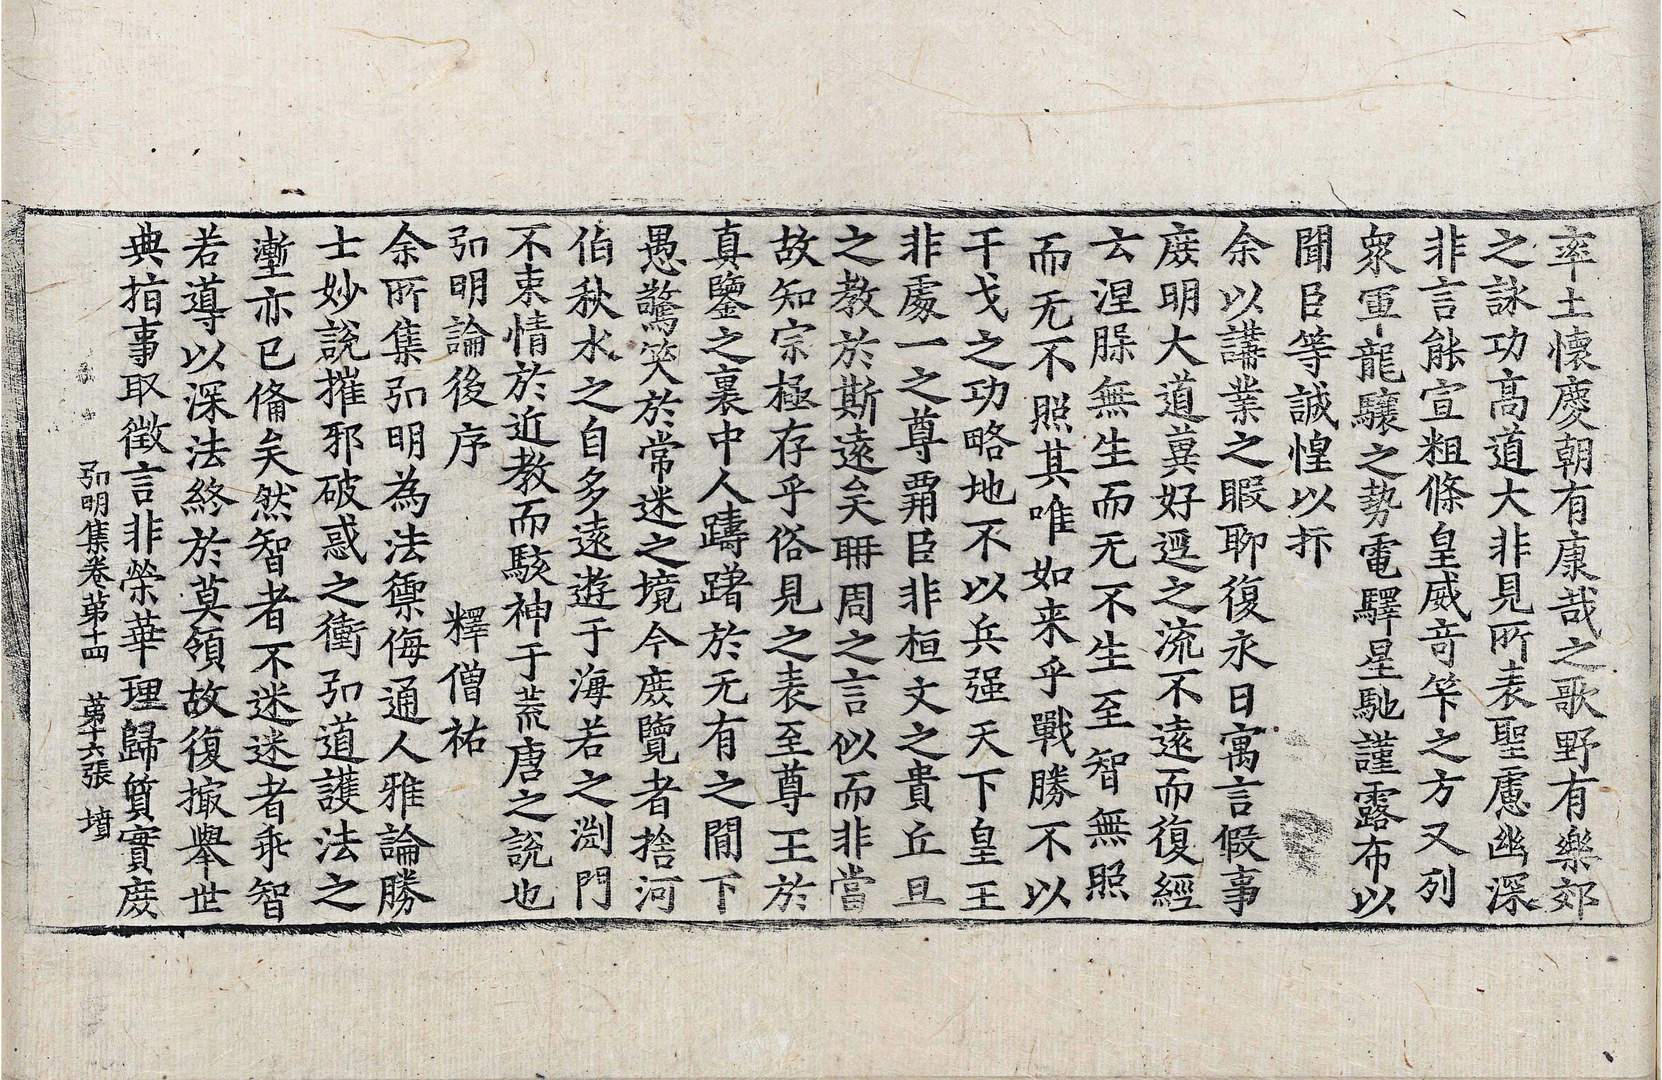 率土懷慶朝有康哉之歌野有樂郊
之詠功高道大非見所表聖慮幽深
非言能宣粗條皇威奇筞之方又列
衆軍龍驤之勢電驛星馳謹露布以
聞臣等誠惶以抃
余以講業之暇聊復永日寓言假事
庻明大道冀好逕之流不遠而復經
云涅脲無生而无不生至智無照
而无不照其唯如来乎戰勝不以
干戈之功略地不以兵强天下皇王
非處一之尊霸臣非桓文之貴丘旦
之教於斯遠矣聃周之言似而非當
故知宗極存乎俗見之表至尊王於
真鑒之裏中人躊躇於无有之間下
愚驚笑於常迷之境今庻覽者捨河
伯秋水之自多遠遊于海若之淵門
不束情於近教而駭神于荒唐之說也
弘明論後序　釋僧祐
余所集弘明為法禦侮通人雅論勝
士妙說摧邪破惑之衝弘道護法之
塹亦已俻矣然智者不迷迷者乖智
若導以深法終於莫領故復撮舉世
典指事取徵言非榮華理歸質實庻
弘明集卷苐十四　苐十六張　墳